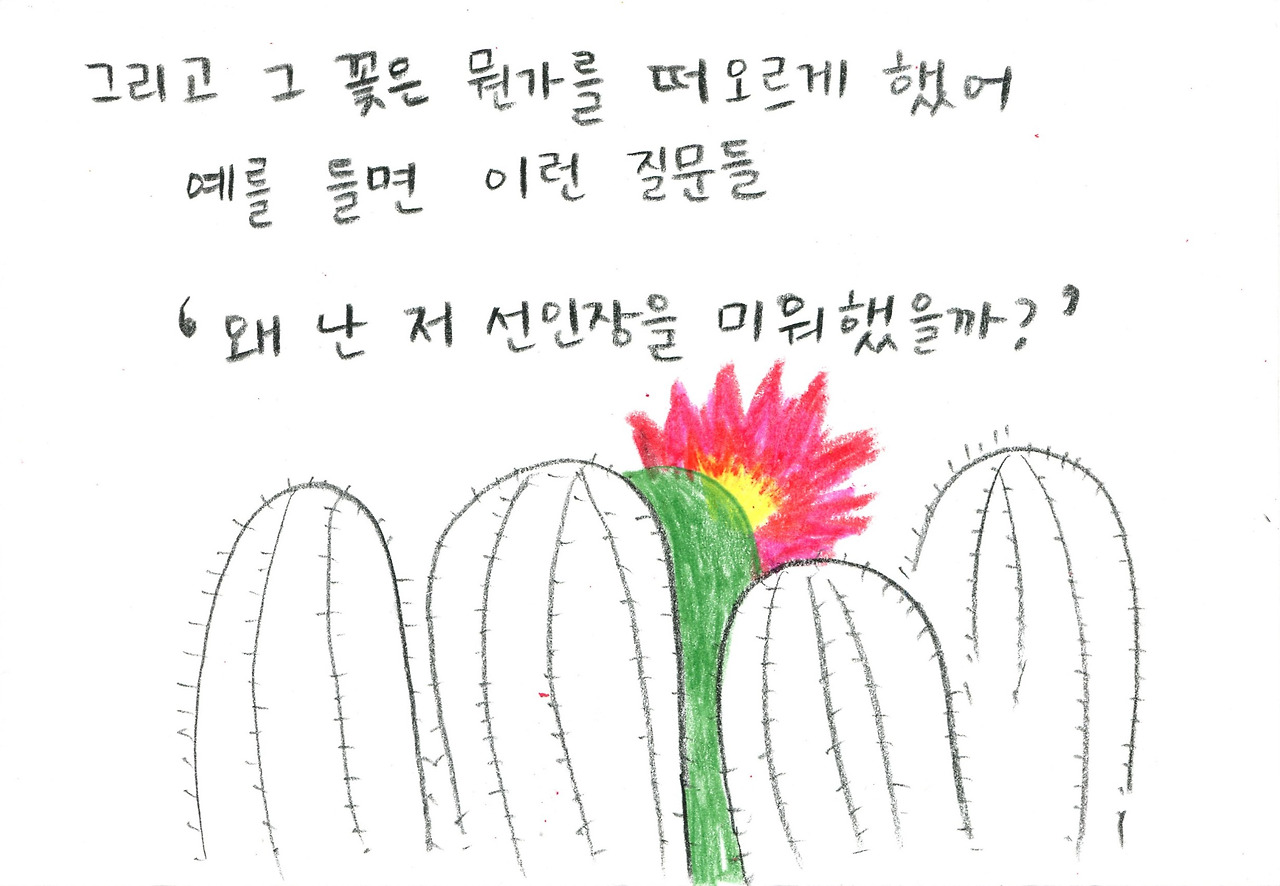 그리고 그 꽃은 뭔가를 떠오르게 했어
예를 들면 이런 질문들
‘왜 난 저 선인장을 미워했을까?’